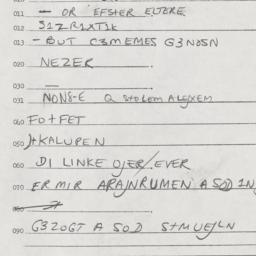 011 — OR EFSTER ELTERE
012 S1ZR1XT1K
013 - BUT C3MEMES G3NOSN
020 NEZER
030 —
031 NONS-E Q STOLEM ALEXEM
040 FO+FET
050 J+KALUPEN
060 DI LINKE OJER/EVER
070 ER MIR ARAJNRUMEN A SOD IN
080
090 G3ZOGT A SOD S+MUEJLN